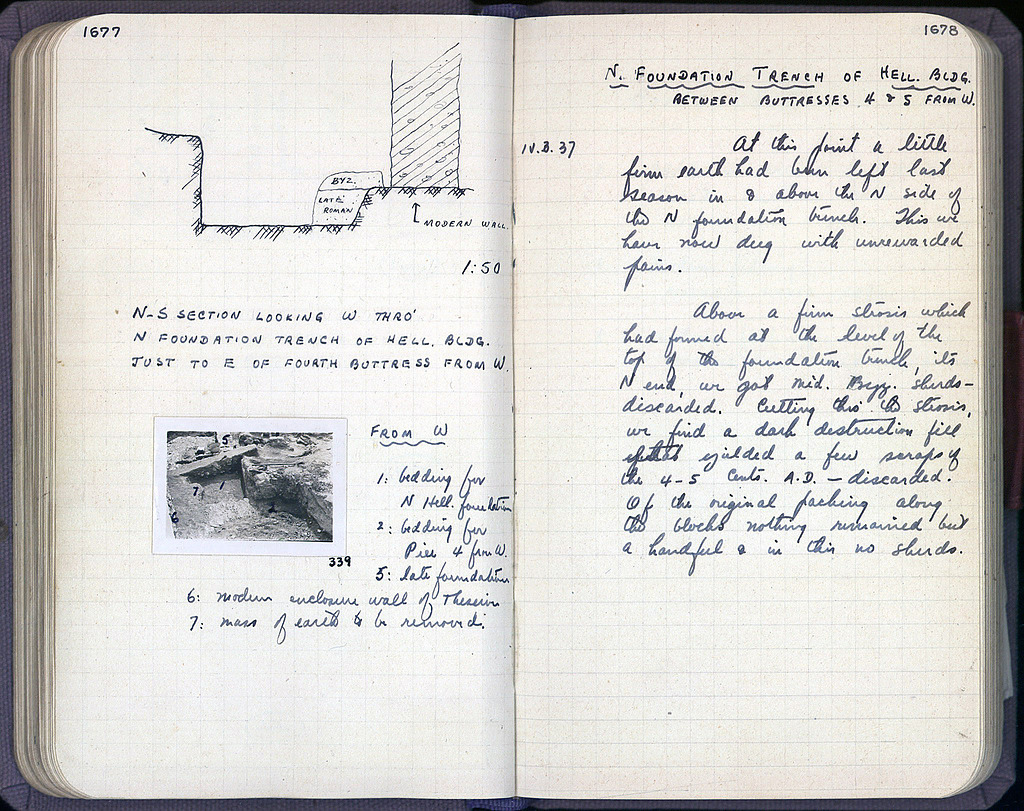 1677
BYZ.
LATE
ROMAN
MODERN WALL.
1:50
N-S SECTION LOOKING W THRO'
N FOUNDATION TRENCH OF HELL. BLDG.
JUST TO E OF FOURTH BUTTRESS FROM W.
FROM W
5
7 1
6 2
1: bedding for
N Hell. foundation
2: bedding for
Pier 4 from W.
339
5: late foundation
6: modern enclosure wall of Theseion
7: mass of earth to be removed.
1678
N. FOUNDATION TRENCH OF HELL. BLDG.
BETWEEN BUTTRESSES 4 & 5 FROM W.
IV.3.37
At this point a little
firm earth had been left last
season in & above the N side of
the N foundation trench. This we
have now dug with unrewarded
pains.
Above a firm strosis which
had formed at the level of the
top of the foundation trench, its
N end, we got mid. Byz. sherds –
discarded. Cutting thro' the strosis,
we find a dark destruction fill
that yielded a few scraps of
the 4-5 cents. A.D. – discarded.
Of the original packing along
the blocks nothing remained but
a handful & in this no sherds.